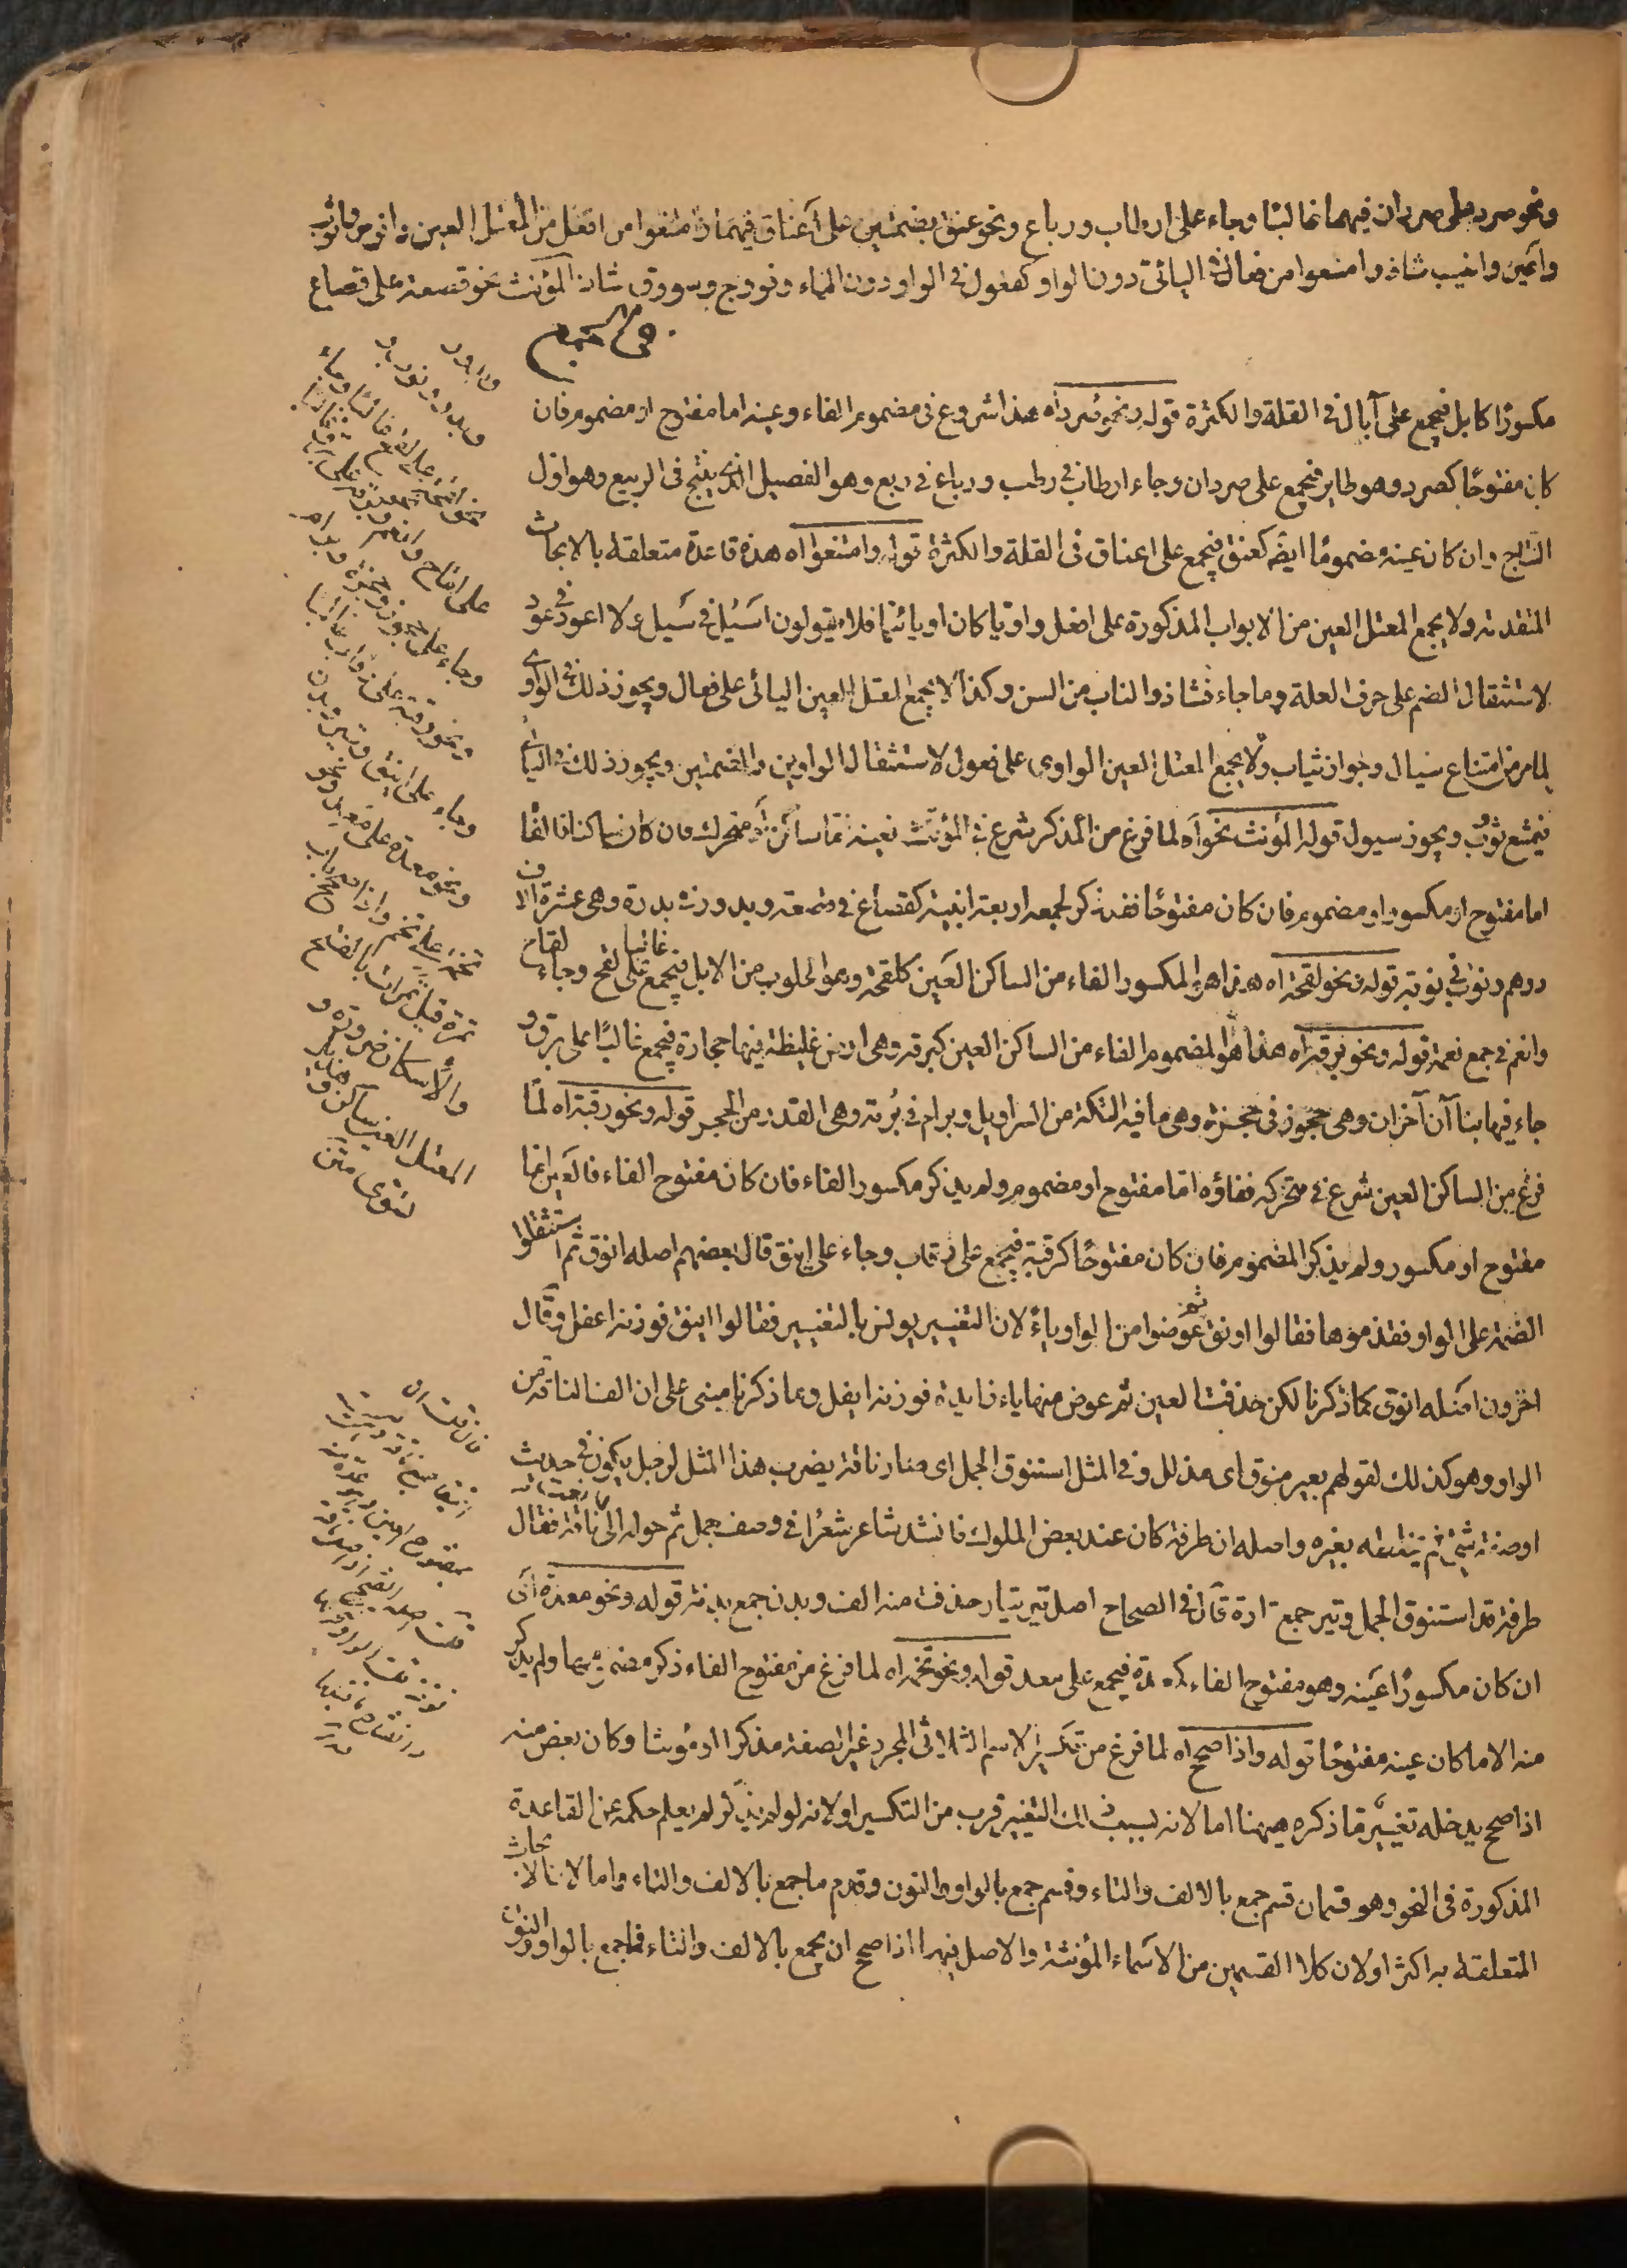 ونحو صرد على صردان فيهما غالبا وجاء على ارطاب ورباع ونحو عنق بضمتين على اعناق فيهما وامتنعوا من افعل من المعتل العين واقوس واثوب
واعين وانيب شاذ وامتنعوا من فعال فى اليائى دون الواو كفعول فى الواو دون الياء وفووج وسووق شاذ المؤنث نحو قصعة على قصاع
مكسورا كابل فيجمع على آبال فى القلة والكثرة قوله ونحو صرد اه هذا شروع فى مضموم الفاء وعينه اما مفتوح او مضموم فان
كان مفتوحا كصرد وهو طاير فيجمع على صردان وجاء ارطاب فى رطب ورباع فى ربع وهو الفصيل الذى ينتج فى الربيع وهو اول
النتاج وان كان عينه مضموما ايضا كعنق فيجمع على اعناق فى القلة والكثرة قوله وامتنعوا اه هذه قاعدة متعلقة بالابحاث
المتقدمة ولا يجمع المعتل العين من الابواب المذكورة على افعل واويا كان او يائيا فلا يقولون اسيل فى سيل ولا اعود فى عود
لاستثقال الضم على حرف العلة وما جاء فشاذ والناب من السن وكذا لا يجمع المعتل العين اليائى على فعال ويجوز ذلك فى الواوى
لما مر من امتناع سيال وجواز ثياب ولا يجمع المعتل العين الواوى على فعول لاستثقال الواوين والضمتين ويجوز ذلك فى اليائى
فيمتنع ثووب ويجوز سيول قوله المؤنث نحو اه لما فرغ من المذكر شرع فى المؤنث فعينه اما ساكن او متحرك فان كان ساكنا فالفا
اما مفتوح او مكسور او مضموم فان كان مفتوحا فقد ذكر لجمعه اربعة ابنية كقصاع فى قصعة وبدور فى بدرة وهى عشرة الاف
درهم ونوب فى نوبة قوله ونحو لقحة اه هذا هو المكسور الفاء من الساكن العين كلقحة وهو الحلوب من الابل فيجمع غالبا على لقح وجاء لقاح
وانعم فى جمع نعمة قوله ونحو برقة اه هذا هو المضموم الفاء من الساكن العين كبرقة وهى ارض غليظة فيها حجارة فيجمع غالبا على برق و
جاء فيها بناآن آخران وهى حجوز فى حجزة وهى ما فيه التكة من السراويل وبرام فى برمة وهى القدر من الحجر قوله ونحو رقبة اه لما
فرغ من الساكن العين شرع فى متحركه ففاؤه اما مفتوح او مضموم ولم يذكر مكسور الفاء فان كان مفتوح الفاء فالعين اما
مفتوح او مكسور ولم يذكر المضموم فان كان مفتوحا كرقبة فيجمع على رقاب وجاء على اينق قال بعضهم اصله انوق ثم استثقلوا
الضمة على الواو فقدموها فقالوا اونق ثم عوضوا من الواو ياء لان التغيير يونس بالتغيير فقالوا اينق فوزنه اعفل وقال
اخرون اصله انوق كما ذكرنا لكن حذفت العين ثم عوض منها ياء زايدة فوزنه ايفل وما ذكرنا مبنى على ان الف الناقة من
الواو وهو كذلك لقولهم بعير منوق اى مذلل وفى المثل استنوق الجمل اى صار ناقة يضرب هذا المثل لرجل يكون فى حديث
او صفة شئ ثم يخلطه بغيره واصله ان طرفة كان عند بعض الملوك فانشد شاعر شعرا فى وصف جمل ثم حوله الى نعت ناقة فقال
طرفة قد استنوق الجمل وتير جمع تارة قال فى الصحاح اصل تير تيار حذفت منه الف وبدن جمع بدنة قوله ونحو معدة اى
ان كان مكسورا عينه وهو مفتوح الفاء كمعدة فيجمع على معد قوله ونحو تخمة اه لما فرغ من مفتوح الفاء ذكر مضمومها ولم يذكر
منه الا ما كان عينه مفتوحا قوله واذا صح اه لما فرغ من تكسير الاسم الثلاثى المجرد غير الصفة مذكرا او مؤنثا وكان بعض منه
اذا صح يدخله تغيير ما ذكره ههنا اما لانه بسبب ذلك التغيير قرب من التكسير او لانه لو لم يذكر لم يعلم حكمه عن القاعدة
المذكورة فى النحو وهو قسمان قسم جمع بالالف والتاء وقسم جمع بالواو والنون وقدم ما جمع بالالف والتاء واما لان الابحاث
المتعلقة به اكثر او لان كلا القسمين من الاسماء المؤنثة والاصل فيها اذا صح ان يجمع بالالف والتاء فما جمع بالواو والنون
وبدور وبدر ونوب و
على لقح غالبا وجاء
على لقاح وانعم ونحو
وجاء على حجوز وبرام
ونحو رقبة على رقاب
وجاء على اينق وتير وبدن
ونحو معدة على معد ونحو
تخمة على تخم واذا صح باب
تمرة قيل تمرات بالفتح
والاسكان ضرورة و
المعتل العين ساكن و
هذيل
تسوى متن